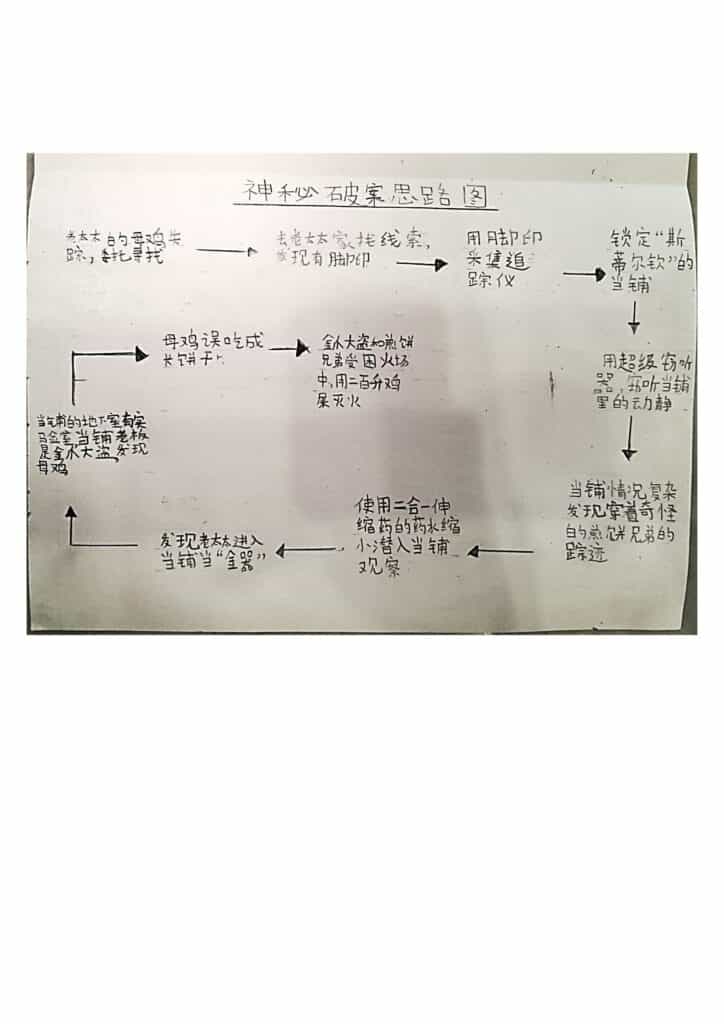 神秘破案思路图
老太太的母鸡失
踪，委托寻找
去老太太家找线索，
发现有脚印
用脚印
采集追
踪仪
锁定“斯
蒂尔钦”的
当铺
用超级窃听
器，窃听当铺
里的动静
当铺情况复杂
发现穿着奇怪
的煎饼兄弟的
踪迹
使用二合一伸
缩药的药水缩
小潜入当铺
观察
发现老太太进入
当铺当“金器”
当铺的地下室有实
验室当铺老板
是金水大盗，发现
母鸡
母鸡误吃成
长饼干
金水大盗和煎饼
兄弟受困火场
中，用二百升鸡
尿灭火